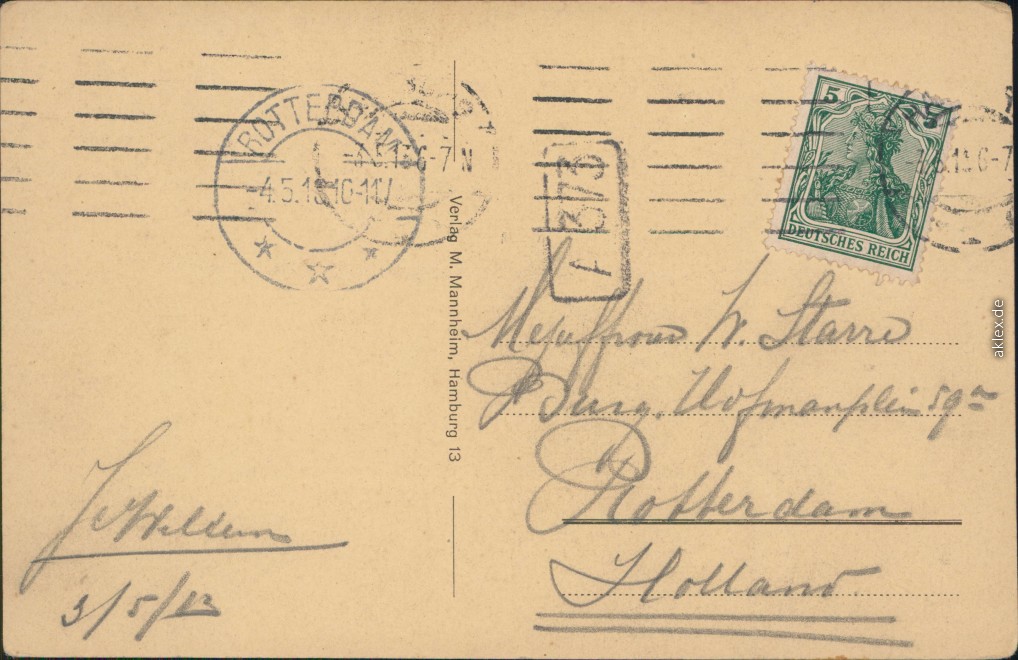 ROTTERDAM
-4.5.13 10-11V
6-7 N
A 373
5 5
DEUTSCHES REICH
Verlag M. Mannheim, Hamburg 13
Mejuffrouw W. Starre
Burg. Hofmanplein 59
Rotterdam
Holland.
3/5/13
aklex.de